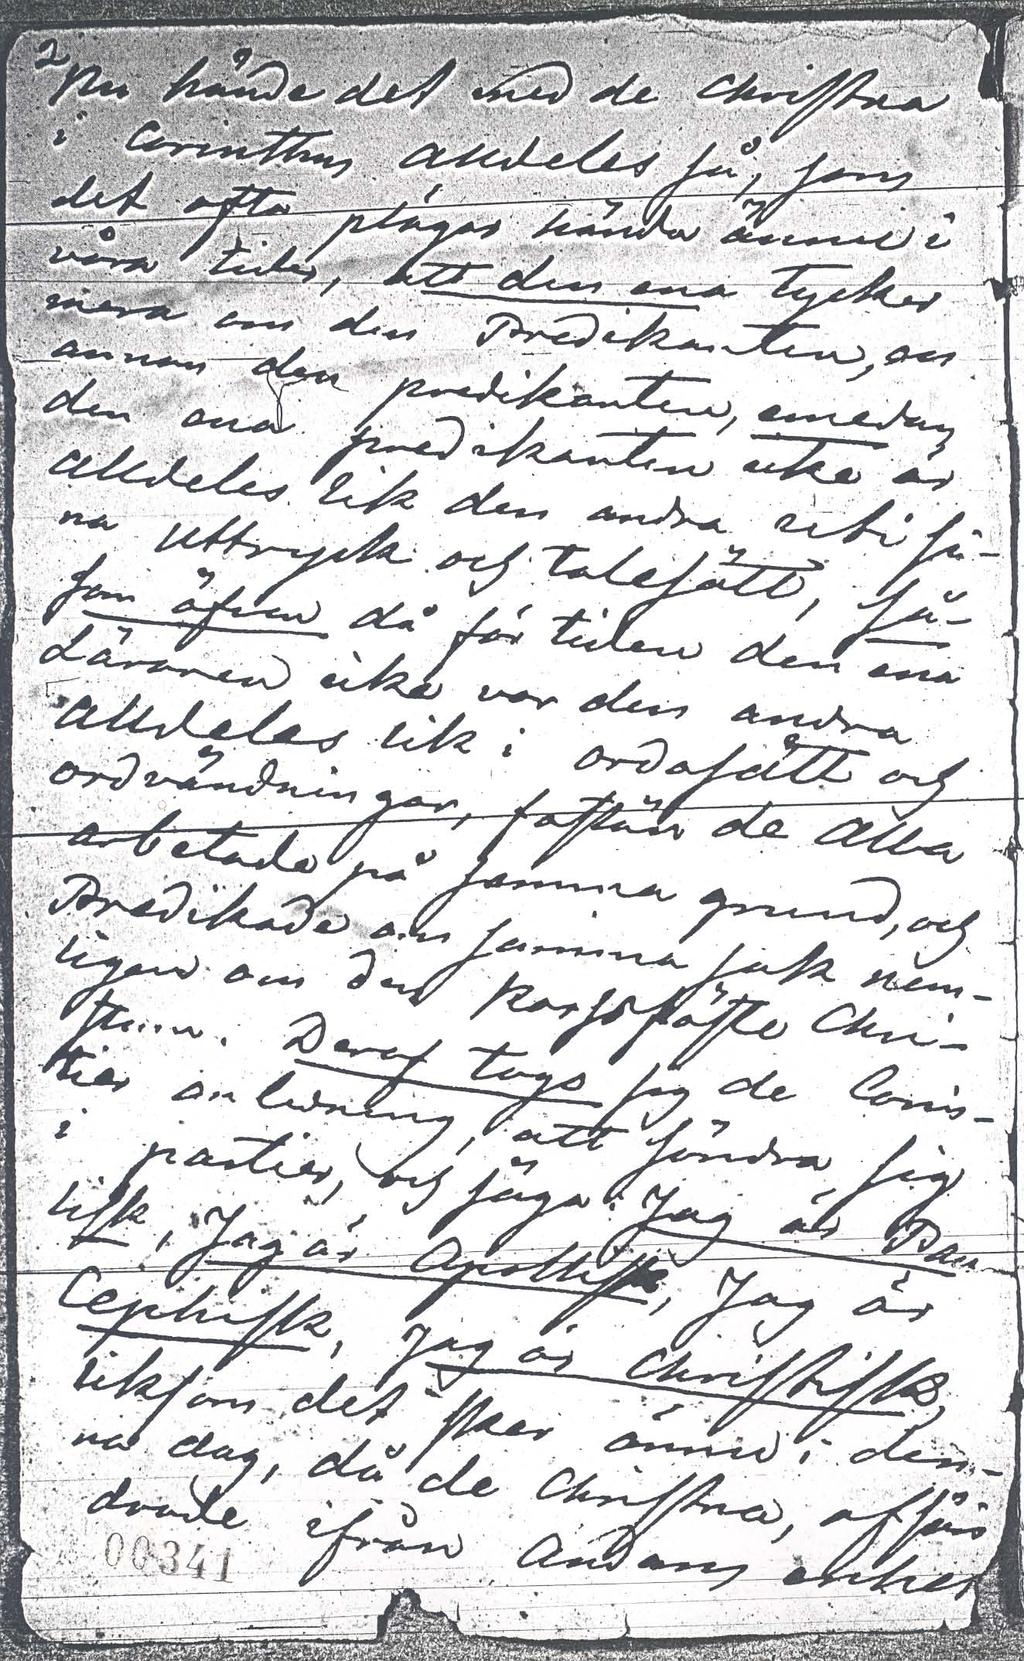 2
Nu hände det med de Christna
i Corinthus alldeles så, som
det ofta plägar hända ännu i
våra tider, att den ena tycker
mera om den Predikanten, en
annan den predikanten, emedan
den ena predikanten icke är
alldeles lik den andra uti si-
na uttryck och talesätt, så-
som äfven då för tiden den ena
Läraren icke var den andra
alldeles lik i ordasätt och
ordvändningar, fastän de alla
arbetade på samma grund, och
Predikade om samma sak nem-
ligen om den korsfäste Chri-
stum. Deraf togo sig de Corin-
tier anledning, att söndra sig
i partier, och säga: Jag är Pau-
lisk, Jag är Apollisk, Jag är
Cephisk, Jag är Christisk,
liksom det sker ännu i den-
na dag, då de Christna, afsön
drade ifrån Andans enhet
00341